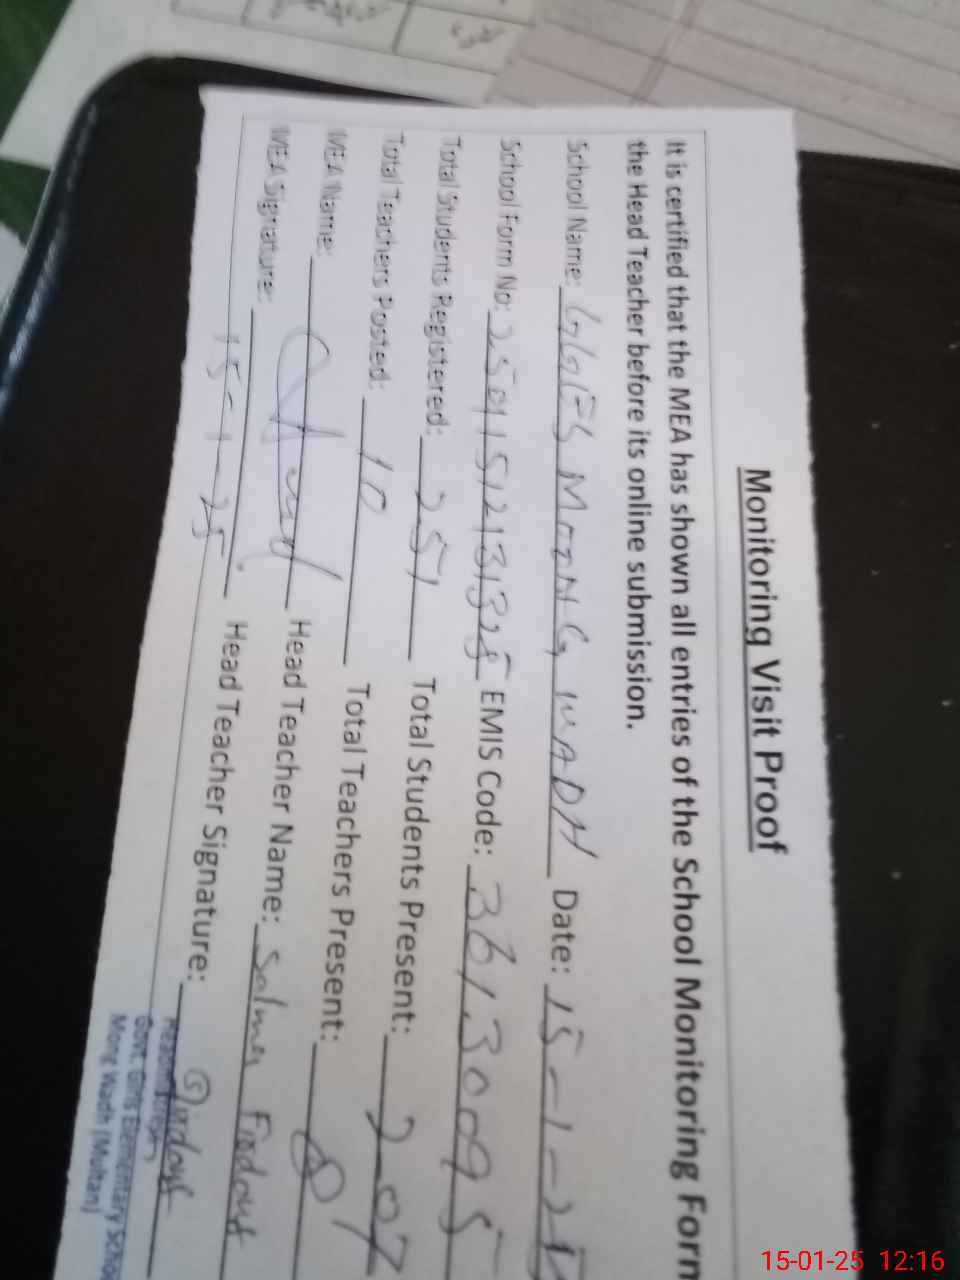 Monitoring Visit Proof
It is certified that the MEA has shown all entries of the School Monitoring Form
the Head Teacher before its online submission.
School Name: GGES MOONG WADH Date: 15-1-25
School Form No: 25011512131325 EMIS Code: 36130095
Total Students Registered: 251 Total Students Present: 207
Total Teachers Posted: 10 Total Teachers Present: 8
MEA Name: Head Teacher Name: Salma Firdous
MEA Signature: Head Teacher Signature: Firdous
15-1-25
Headmistress
Govt. Girls Elementary School
Mong Wadh (Multan)
15-01-25 12:16